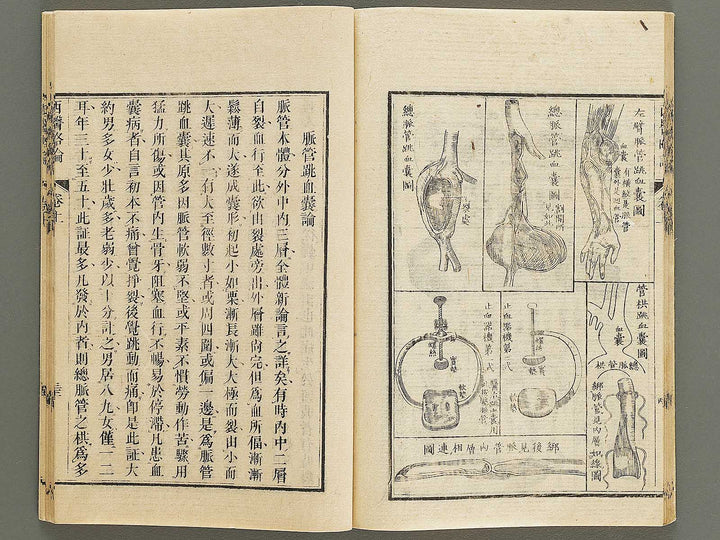 左臂脈管跳血囊圖
血囊
有橫紋是脈管
囊外是迴血管
總脈管跳血囊圖
割開所
見如此
總脈管跳血囊圖
裂處
管栱跳血囊圖
血囊
總脈管栱
綁脈管見內層如線圖
止血器機第二式
螺絲
軟墊
臂小跳血囊用
止血器機第一式
螺絲
寬墊
軟墊
綁後見脈管內層相連圖
脈管跳血囊論
脈管本體分外中內三層全體新論言之詳矣有時內中二層
自裂血行至此欲由裂處旁出外層雖尚完但為血所偪漸漸
鬆薄而大遂成囊形初起小如栗漸長漸大大極而裂由小而
大遲速不一有大至徑數寸者或周四闊或偏一邊是為脈管
跳血囊其原多因脈管軟弱不堅或平素不慣勞動作苦驟用
猛力所傷或因管內生骨牙阻塞血行不暢易於停滯凡患血
囊病者自言初本不痛曾覺掙裂後覺跳動而痛即是此証大
約男多女少壯歲多老弱少以十分計之男居八九女僅一二
耳年三十至五十此証最多凡發於內者則總脈管之栱為多
西醫略論
卷中